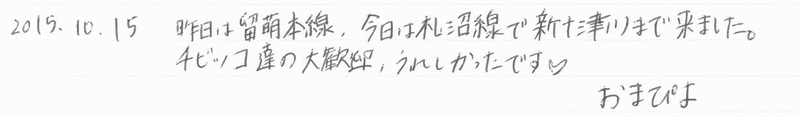 2015.10.15 昨日は留萌本線、今日は札沼線で新十津川まで来ました。
チビッコ達の大歓迎，うれしかったです♡
おまぴよ